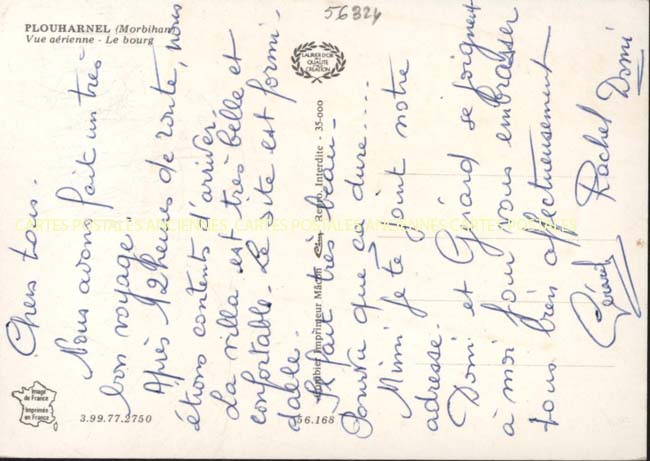 56324
PLOUHARNEL (Morbihan)
Vue aérienne - Le bourg
LAURIER D'OR
DE LA
QUALITÉ
CRÉATION
Chers tous.
Nous avons fait un très
bon voyage.
Après 12 heures de route, nous
étions contents d'arriver.
La villa est très belle et
confortable. Le site est formi-
dable.
Il fait très beau -
Pourvu que ça dure....
Mimi je te joint notre
adresse.
Domi et Gérard se joignent
à moi pour vous embrasser
tous bien affectueusement
Gérard Rachel Domi
Combier Imprimeur Mâcon Repro. Interdite - 35-000
CARTES POSTALES ANCIENNES CARTES POSTALES ANCIENNES CARTES POSTALES ANCIENNES
Image
de France
Imprimée
en France
3.99.77.2750
56.168